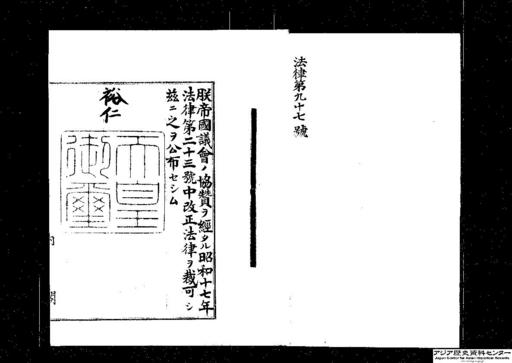 法律第九十七號
朕帝國議會ノ協贊ヲ經タル昭和十七年
法律第二十三號中改正法律ヲ裁可シ
茲ニ之ヲ公布セシム
裕仁
天皇
御璽
内閣
アジア歴史資料センター
Japan Center for Asian Historical Records